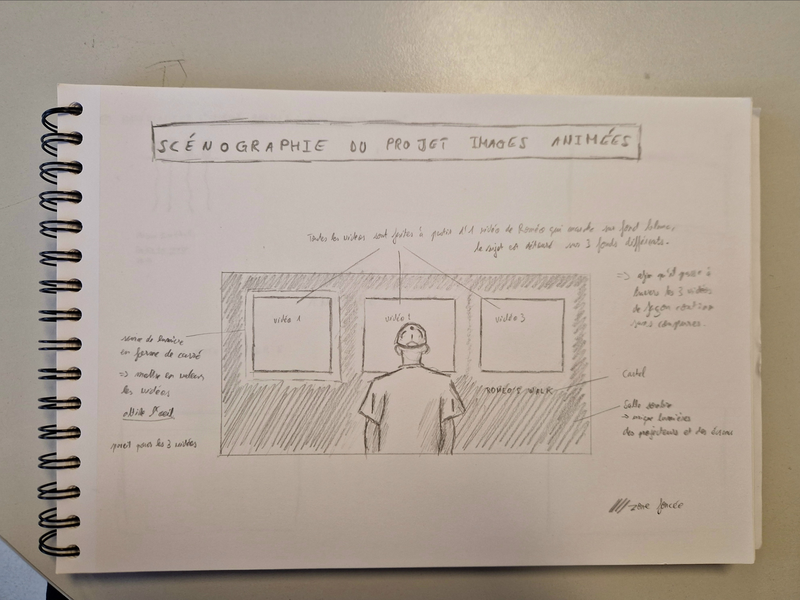 SCÉNOGRAPHIE DU PROJET IMAGES ANIMÉES
Toutes les vidéos sont faites à partir d'1 vidéo de Roméo qui marche sur fond blanc,
le sujet est détouré sur 3 fonds différents.
=> afin qu'il passe à
travers les 3 vidéos
de façon continue
sans coupures.
vidéo 1
vidéo 2
vidéo 3
source de lumière
en forme de carré
=> mettre en valeur
les vidéos
attire l'oeil
pareil pour les 3 vidéos
ROMÉO'S WALK
Cartel
Salle sombre
-> unique lumières
des projecteurs et des écrans
zone foncée